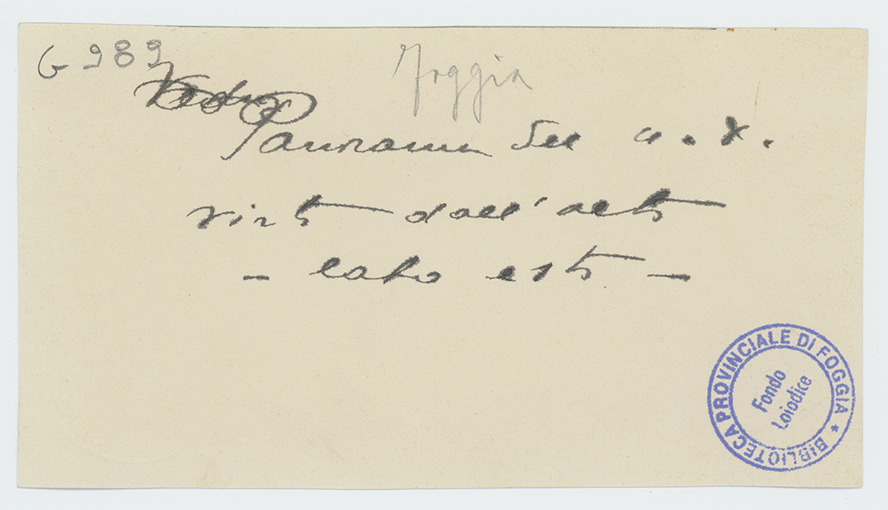 G 989
Foggia
Panorama del u. d.
visto dall'alto
- lato est -
BIBLIOTECA PROVINCIALE DI FOGGIA *
Fondo
Loiodice